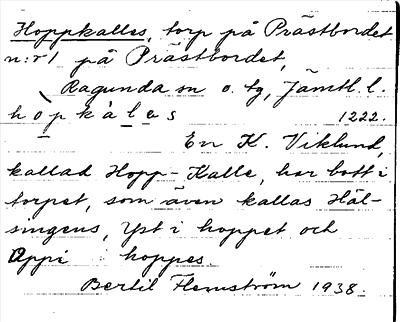 Hoppkalles, torp på Prästbordet
n:r 1 på Prästbordet,
Ragunda sn o. tg, Jämtl. l.
hòpkàles 1222.
En K. Viklund,
kallad Hopp-Kalle, har bott i
torpet, som även kallas Häl-
singens, Yst i hoppet och
Oppi hoppes.
Bertil Flemström 1938.